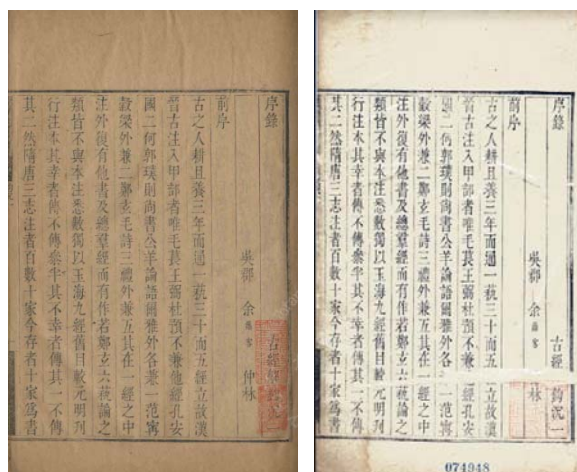 序錄 古經解鉤沉一
吳郡 余蕭客 仲林
前序
古之人耕且養三年而通一蓺三十而五經立故漢
晉古注入甲部者唯毛萇王弼杜預不兼他經孔安
國二何郭璞則尚書公羊論語爾雅外各兼一范甯
穀梁外兼二鄭玄毛詩三禮外兼五其在一經之中
注外復有他書及總羣經而有作若鄭玄六蓺論之
類皆不與本注悉數獨以玉海九經舊目較元明刊
行注本其幸者傳不傳參半其不幸者傳其一不傳
其二然隋唐三志注者百數十家今存者十家爲書
序錄 古經 鉤沉一
吳郡 余蕭客 林
前序
古之人耕且養三年而通一蓺三十而五 立故漢
晉古注入甲部者唯毛萇王弼杜預不兼他經孔安
國二何郭璞則尚書公羊論語爾雅外各 一范甯
穀梁外兼二鄭玄毛詩三禮外兼五其在一經之中
注外復有他書及總羣經而有作若鄭玄六蓺論之
類皆不與本注悉數獨以玉海九經舊目較元明刊
行注本其幸者傳不傳參半其不幸者傳其一不傳
其二然隋唐三志注者百數十家今存者十家爲書
074948